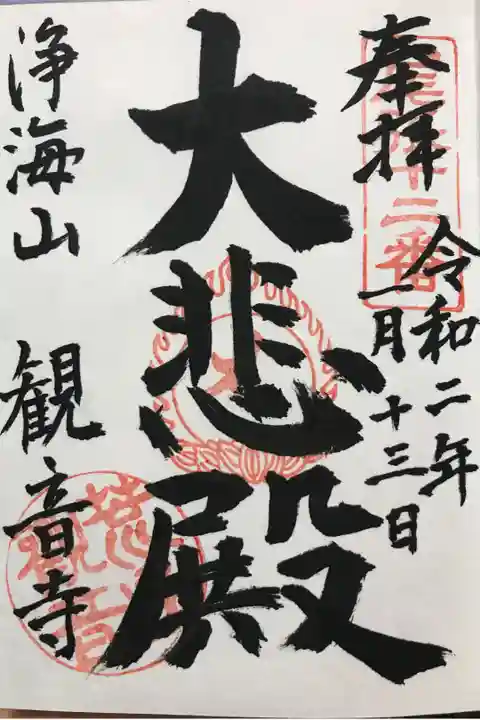 奉拝
令和二年
一月十三日
大悲殿
浄海山 観音寺